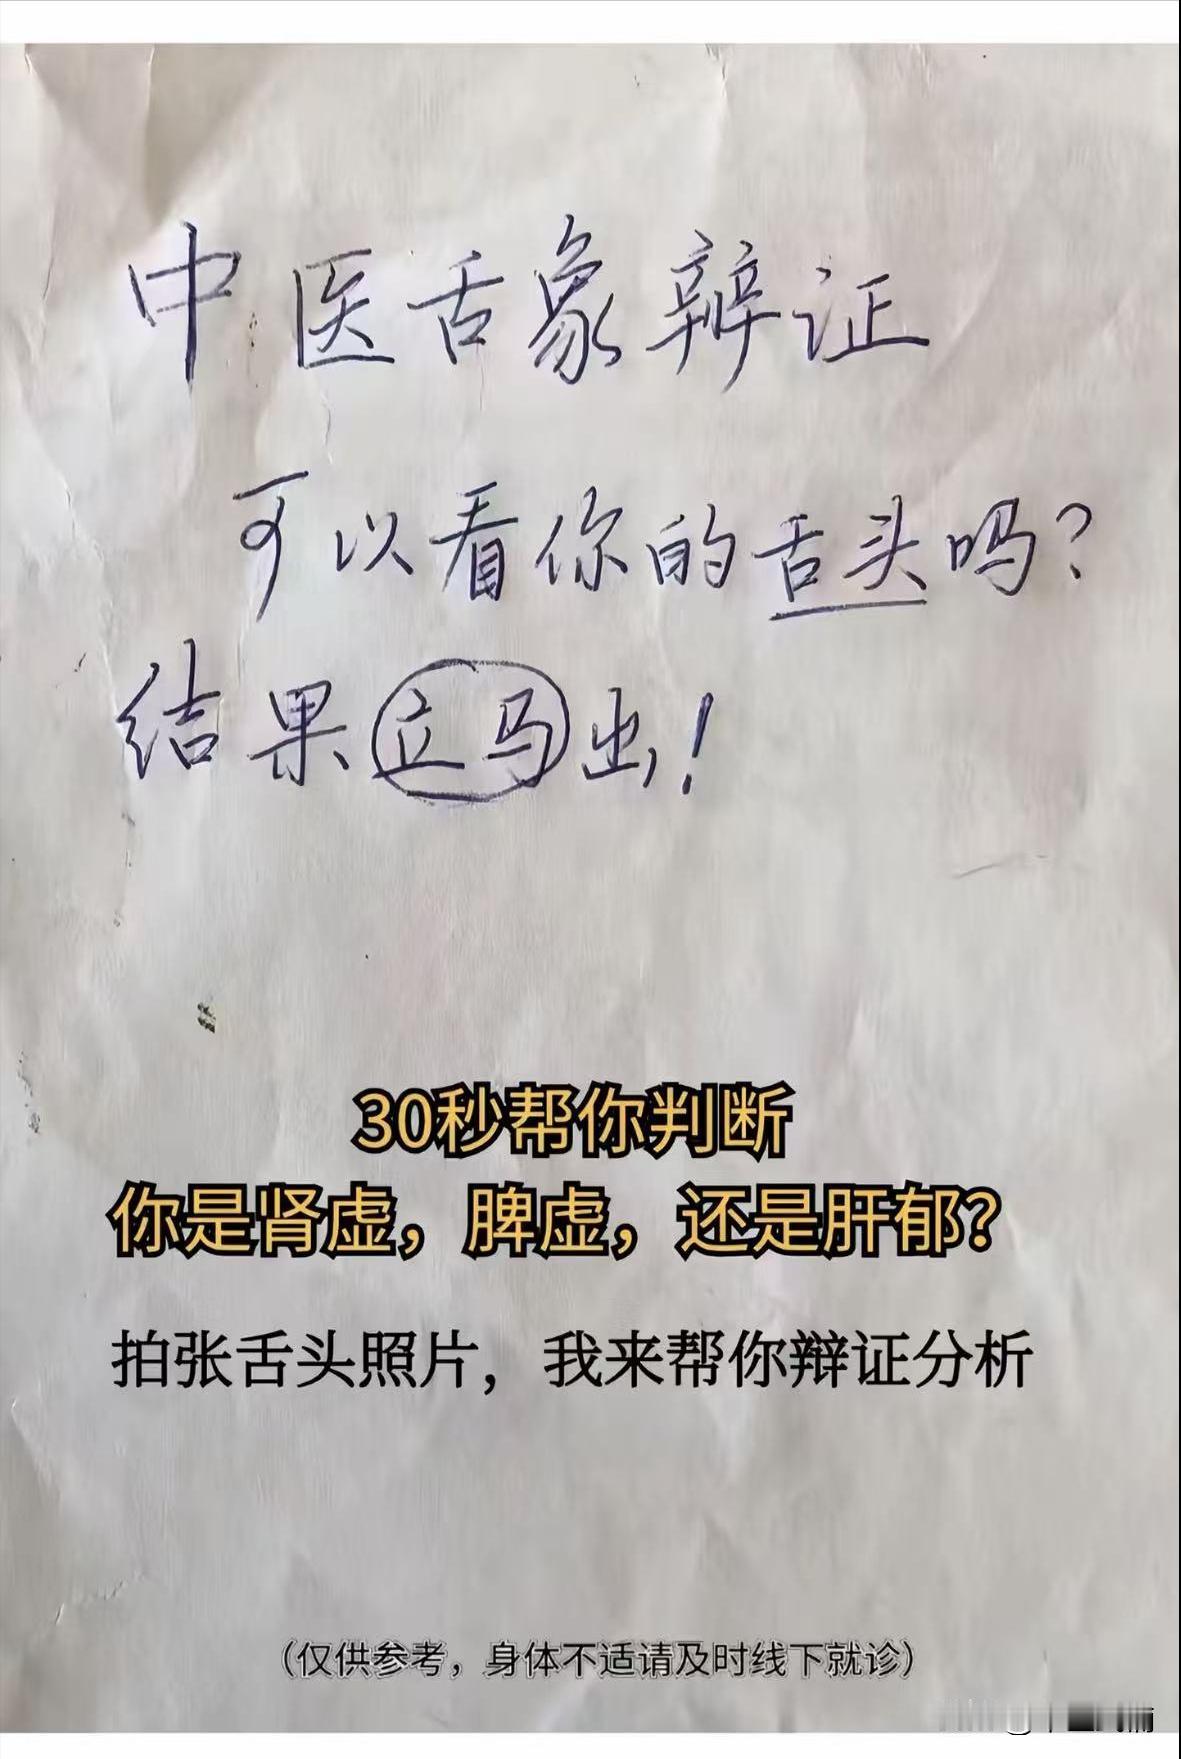 中医舌象辨证
可以看你的舌头吗?
结果立马出!
30秒帮你判断
你是肾虚，脾虚，还是肝郁?
拍张舌头照片，我来帮你辩证分析
（仅供参考，身体不适请及时线下就诊）